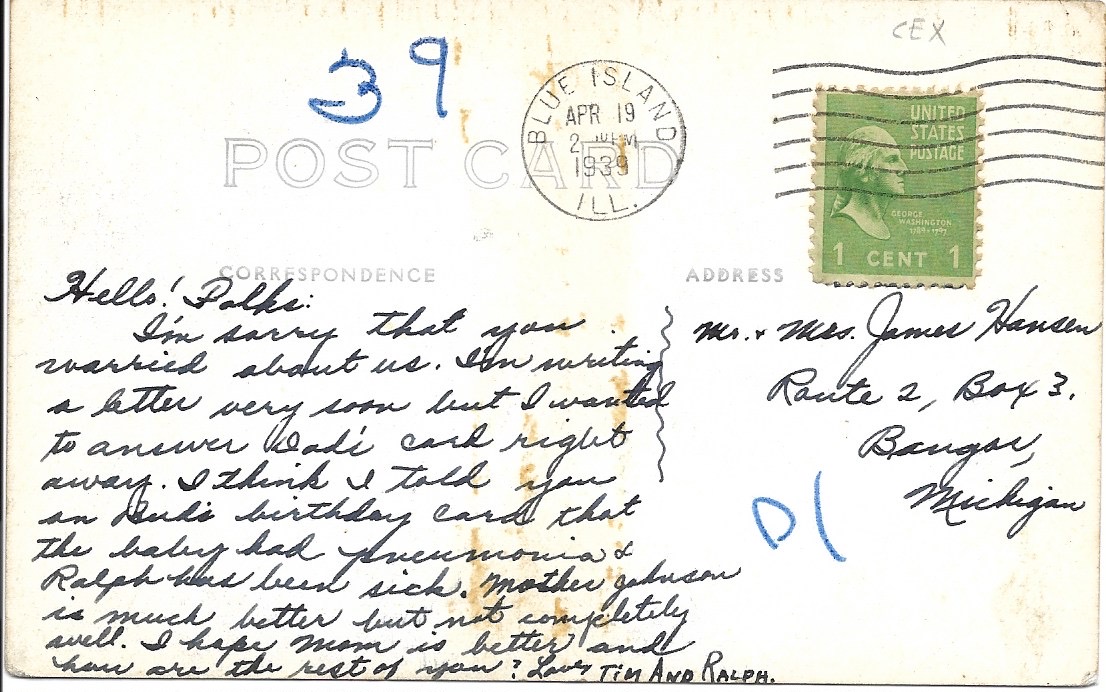 CEX
39
BLUE ISLAND
APR 19
2 PM
1939
ILL.
UNITED
STATES
POSTAGE
GEORGE
WASHINGTON
1789-1797
1 CENT 1
POST CARD
CORRESPONDENCE
ADDRESS
Hello! Folks:
I'm sorry that you
worried about us. I'm writing
a letter very soon but I wanted
to answer Dad's card right
away. I think I told you
on Bud's birthday card that
the baby had pneumonia &
Ralph has been sick. Mother Johnson
is much better but not completely
well. I hope Mom is better and
how are the rest of you? Love, TIM AND RALPH.
Mr. & Mrs. James Hansen
Route 2, Box 3.
Bangor,
Michigan